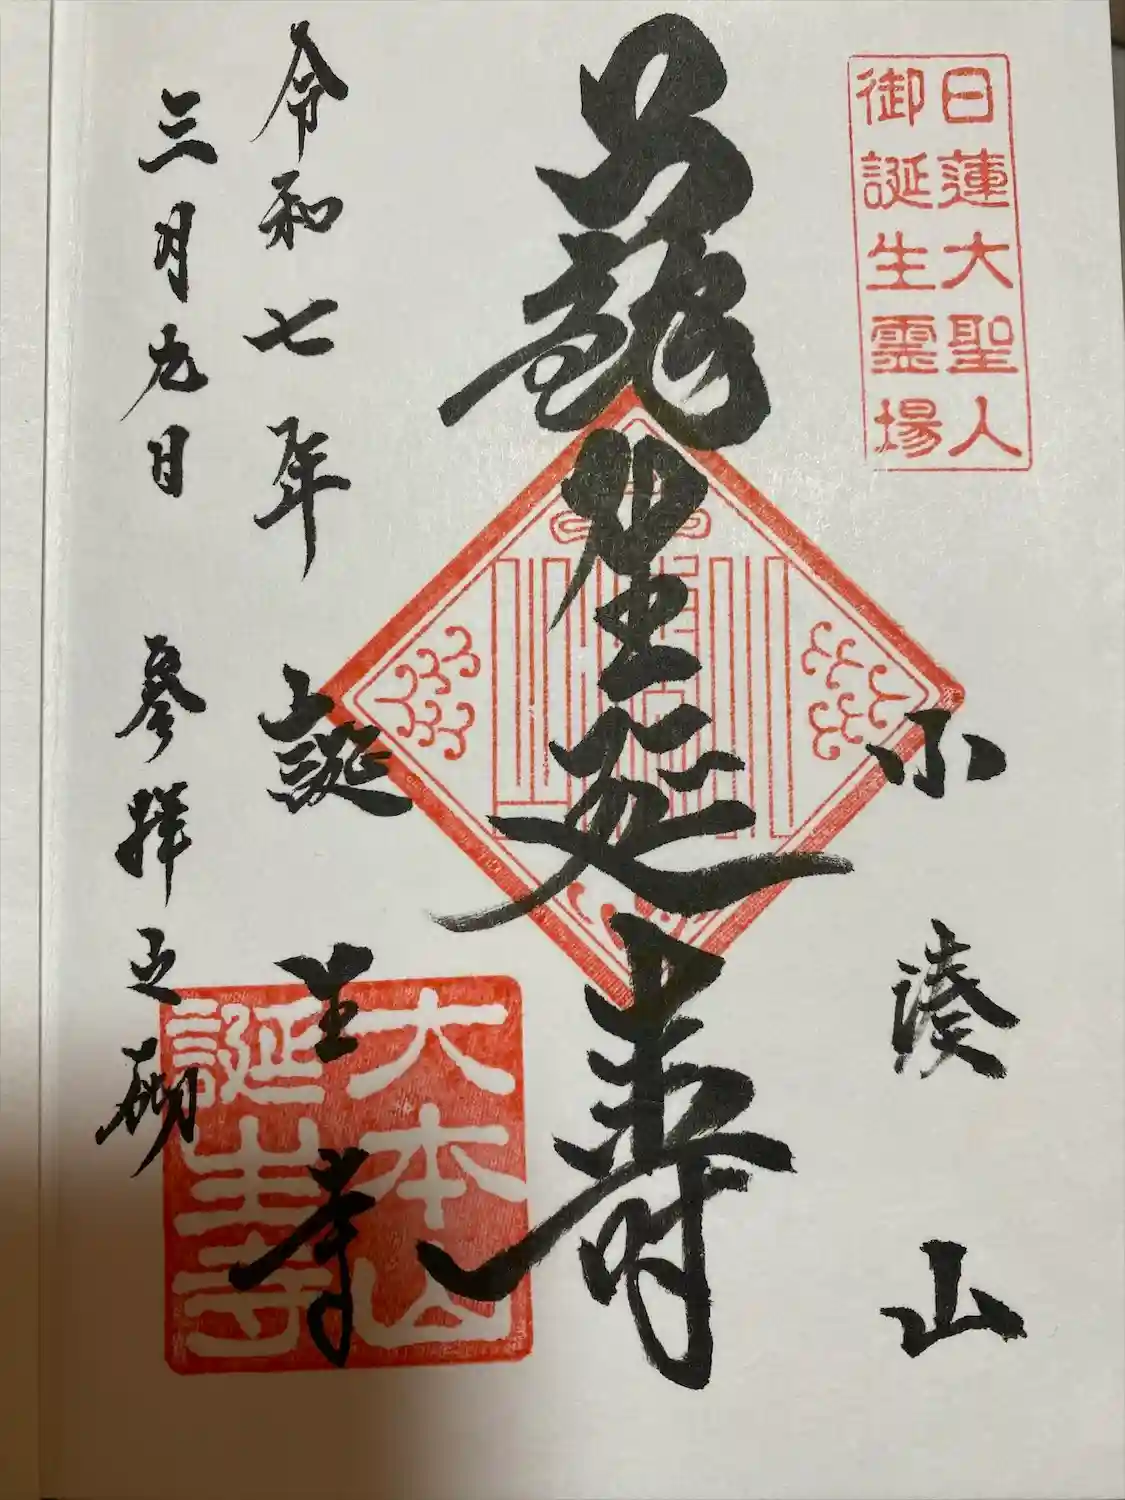 日蓮大聖人
御誕生霊場
小湊山
蘓生延寿
大本山
誕生寺
令和七年 誕生寺
三月九日 参拝之砌